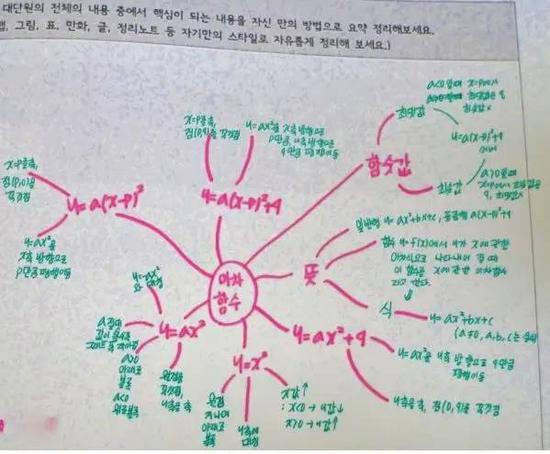 대단원의 전체의 내용 중에서 핵심이 되는 내용을 자신 만의 방법으로 요약 정리해보세요.
그림, 표, 만화, 글, 정리노트 등 자기만의 스타일로 자유롭게 정리해 보세요.)
이차
함수
y=a(x-p)²
x=p를 축,
점(p,0)을
꼭짓점
y=ax²을
x축 방향으로
p만큼 평행이동
y=a(x-p)²+q
x=p를 축,
점(p,q)를 꼭짓점
y=ax²을 x축 방향으로
p만큼, y축 방향으로
q만큼 평행이동
함숫값
최댓값
a<0일때 x=p에서
최솟값
y=a(x-p)²+q
에서
a>0일때
뜻
일반형 y=ax²+bx+c, 표준형 a(x-p)²+q
함수 y=f(x)에서 y가 x에 관한
이차식으로 나타내어 질 때
이 함수를 x에 관한 이차함수
라고 한다.
식
y=ax²+bx+c
(a≠0, a,b,c는 상수
y=ax²+q
y=ax²을 y축 방향으로 q만큼
평행이동
y축을 축, 점(0,q)를 꼭짓점
y=x²
원점
지나며
아래로
볼록
y축에
대칭
x값↑
: x<0→y값↓
x>0→y값↑
y=ax²
a>0
아래로
볼록
a<0
위로볼록
원점을
꼭짓점,
y축을 축